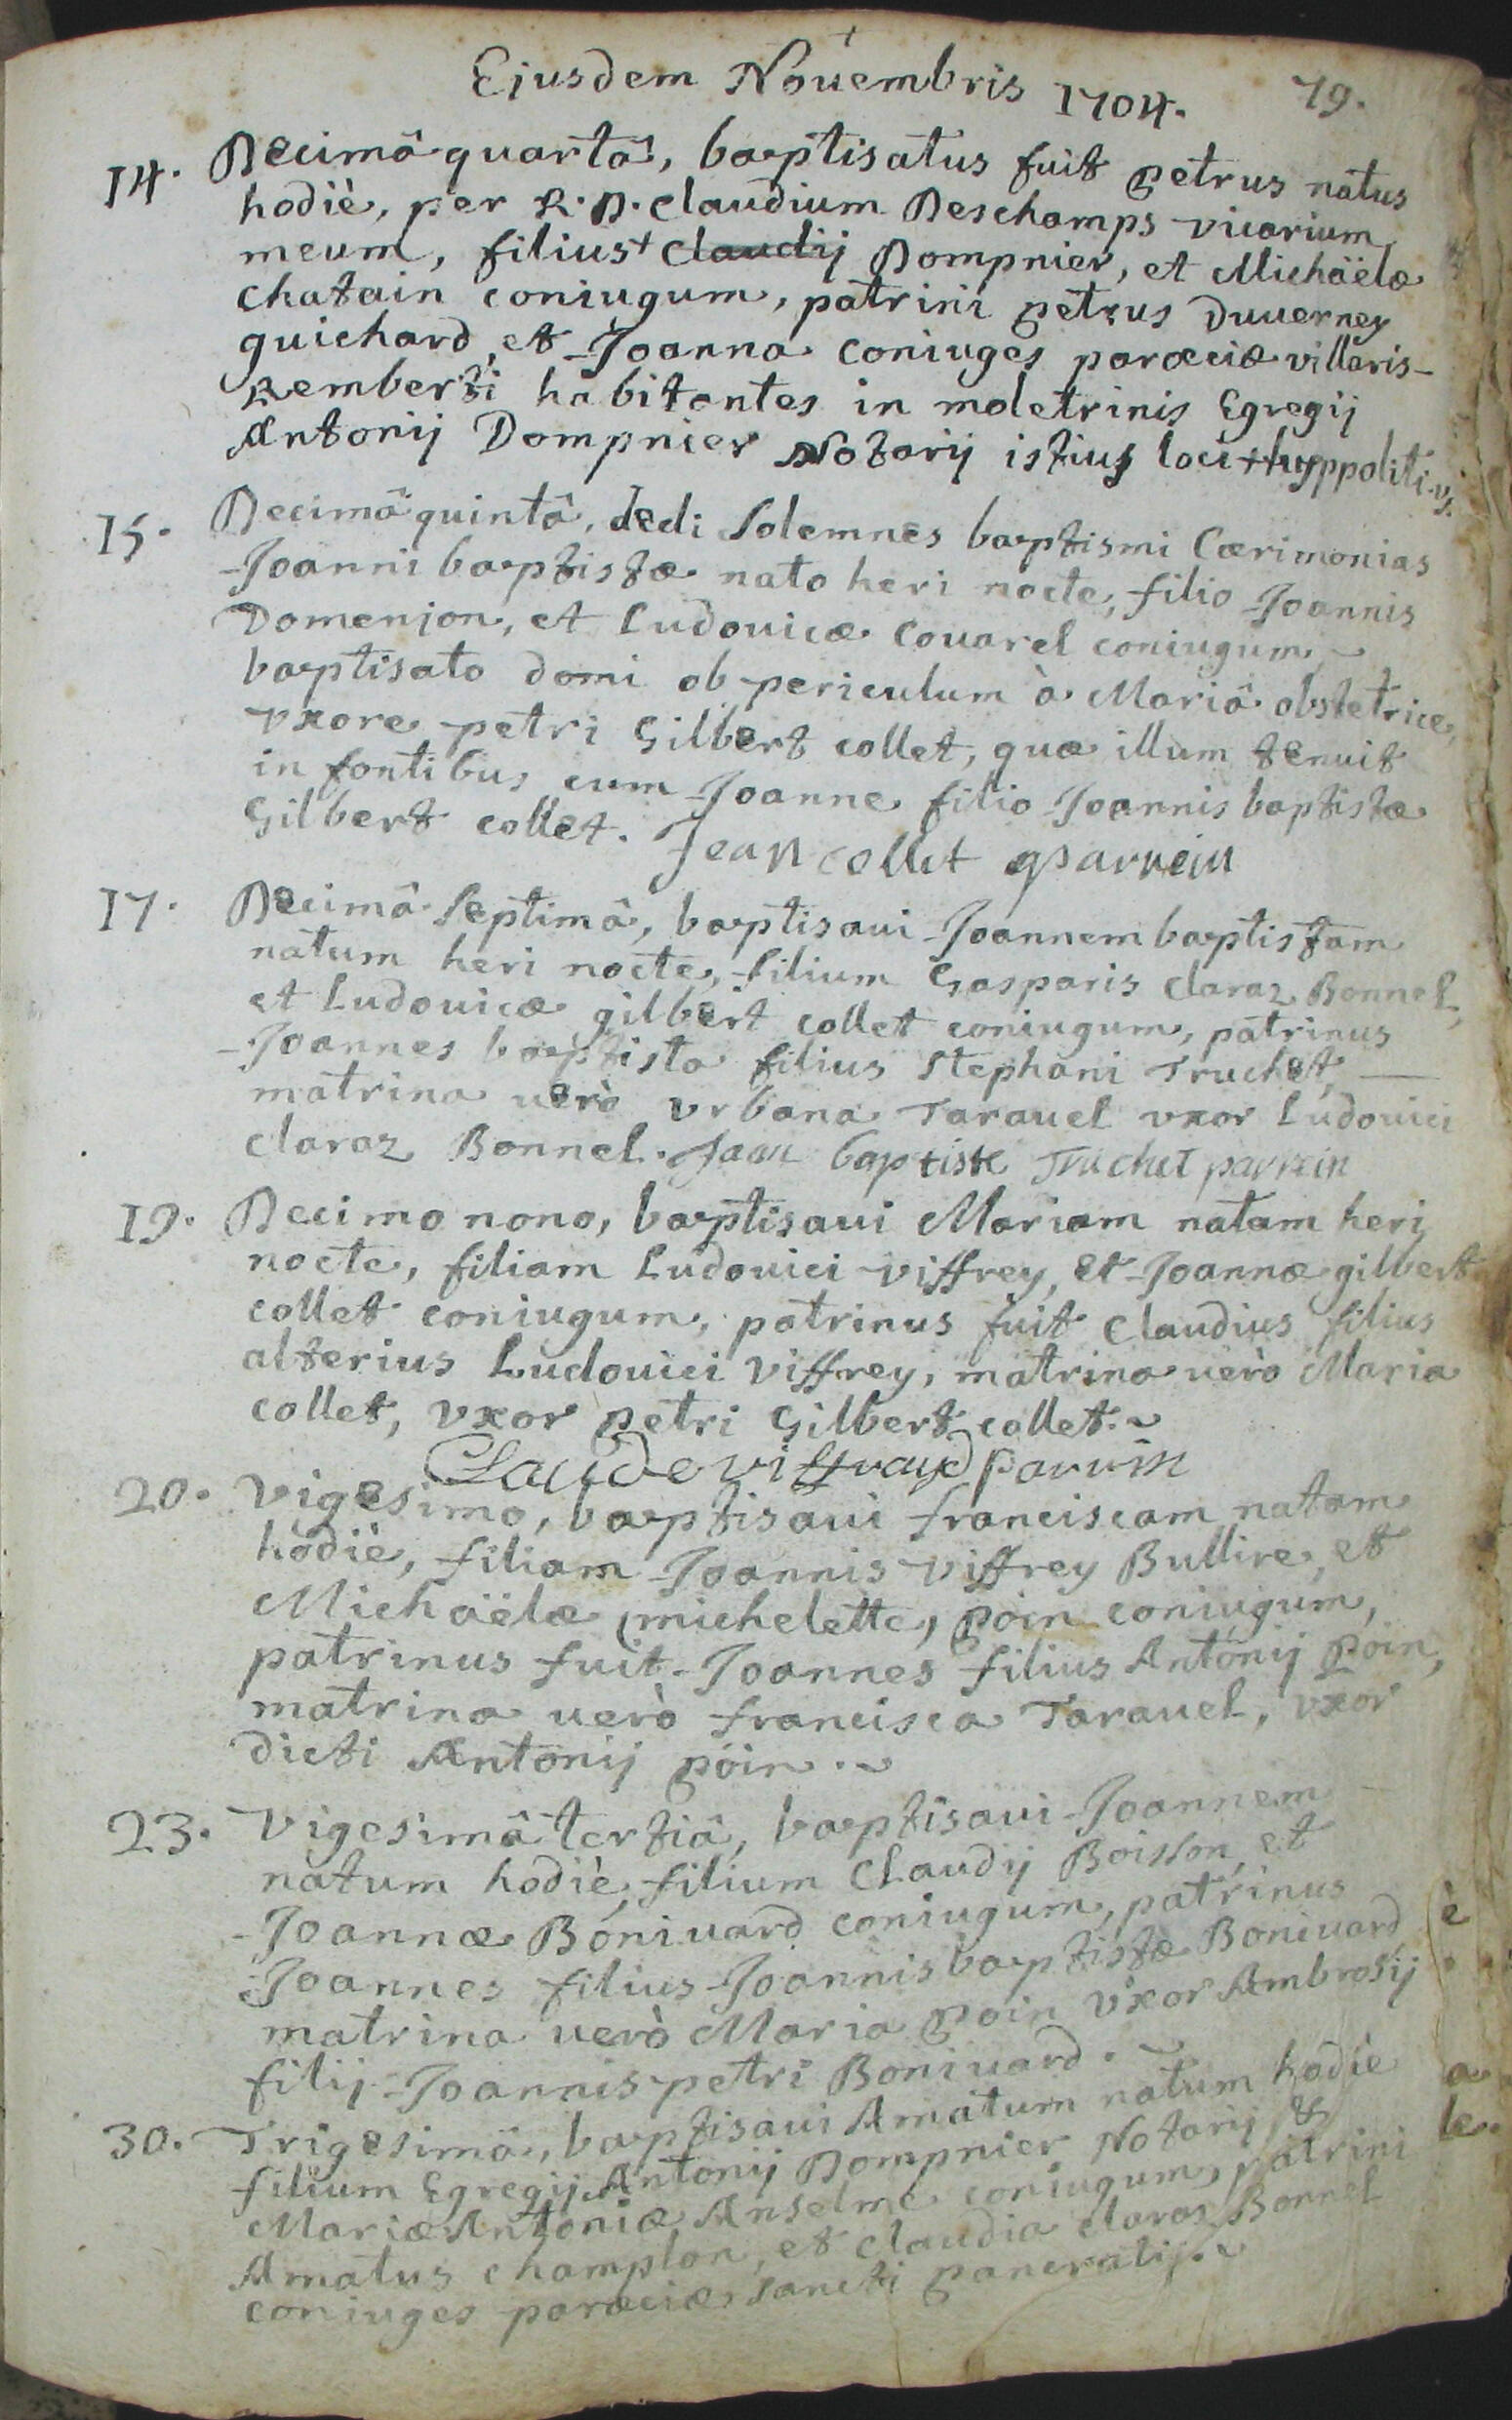 Ejusdem Nouembris 1704. 79.
14. Decimâ quartâ, baptisatus fuit petrus natus
hodiè, per R. D. claudium Deschamps vicarium
meum, filius + Claudij Dompnier, et Michäelæ
chatain coniugum, patrini petrus Duuerney
guichard, et Joanna coniuges parœciæ villaris-
Remberti habitantes in moletrinis Egregij
Antonij Dompnier Notarij istius loci + hyppoliti
15. Decimâ quintâ, dedi solemnes baptismi Cærimonias
Joanni baptistæ nato heri nocte, filio Joannis
Domenjon, et Ludouicæ Couarel coniugum,
baptisato domi ob periculum à Mariâ obstetrice,
vxore petri Gilbert collet, quæ illum tenuit
in fontibus cum Joanne filio Joannis baptistæ
Gilbert collet. Jean collet parrein
17. Decimâ septimâ, baptisaui Joannem baptistam
natum heri nocte, filium Gasparis claraz Bonnel,
et Ludouicæ gilbert collet coniugum, patrinus
Joannes baptista filius Stephani Truchet,
matrina uerò vrbana Tarauel vxor Ludouici
claraz Bonnel. Jean baptiste Truchet parrein
19. Decimo nono, baptisaui Mariam natam heri
nocte, filiam Ludouici viffrey, et Joannæ gilbert
collet coniugum, patrinus fuit Claudius filius
alterius Ludouici viffrey, matrina uerò Maria
collet, vxor petri Gilbert collet.
Claude viffray parrin
20. Vigesimo, baptisaui franciscam natam
hodiè, filiam Joannis viffrey Bullire, et
Michäelæ (michelette) poin coniugum,
patrinus fuit Joannes filius Antonij poin,
matrina uerò francisca Tarauel, vxor
dicti Antonij poin.
23. Vigesimâ tertiâ, baptisaui Joannem
natum hodiè, filium Claudij Boisson, et
Joannæ Boniuard coniugum, patrinus
Joannes filius Joannis baptistæ Boniuard
matrina uerò Maria poin vxor Ambrosij
filij Joannis petri Boniuard.
30. Trigesimâ, baptisaui Amatum natum hodie
filium Egregij Antonij Dompnier Notarij &
Mariæ Antoniæ Anselme coniugum, patrini
Amatus champlon, et claudia claraz Bonnel
coniuges parœciæ sancti pancratij.